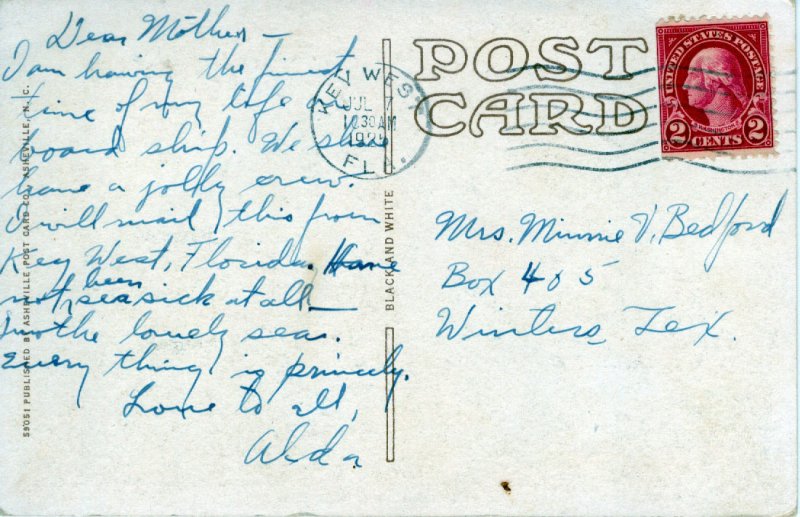 Dear Mother -
I am having the finest
time of my life on
board ship. We shore
have a jolly crew.
I will mail this from
Key West, Florida. Have
not been sea sick at all -
on the lonely sea.
Every thing is princely.
Love to all,
Alda
59051 PUBLISHED BY ASHEVILLE POST CARD CO., ASHEVILLE, N. C.
BLACK AND WHITE
POST
CARD
KEY WEST
JUL 7
10 30 AM
FLA.
UNITED STATES POSTAGE
WASHINGTON
2 CENTS 2
Mrs. Minnie V. Bedford
Box 405
Winters, Tex.